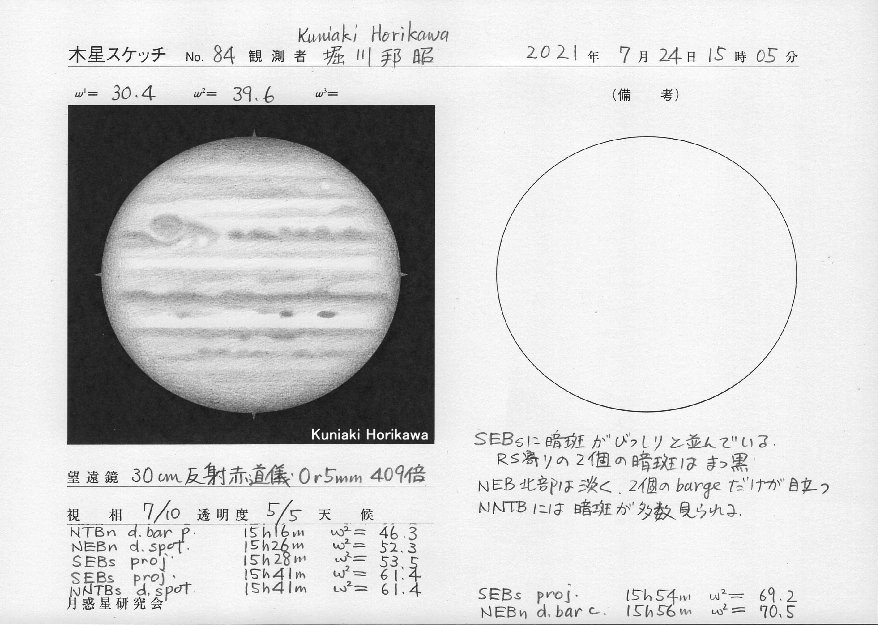 Kuniaki Horikawa
木星スケッチ No. 84 観測者 堀川邦昭 2021年 7月24日15時05分
ω¹= 30.4 ω²= 39.6 ω³=
(備 考)
Kuniaki Horikawa
SEBsに暗斑がびっしりと並んでいる.
RS寄りの2個の暗斑はまっ黒
NEB北部は淡く、2個のbargeだけが目立つ
NNTBには暗斑が多数見られる.
望遠鏡 30cm反射赤道儀 Or5mm 409倍
視相 7/10 透明度 5/5 天候
NTBn d.bar p. 15h16m ω²= 46.3
NEBn d.spot. 15h26m ω²= 52.3
SEBs proj. 15h28m ω²= 53.5
SEBs proj. 15h41m ω²= 61.4
NNTBs d.spot 15h41m ω²= 61.4
月惑星研究会
SEBs proj. 15h54m ω²= 69.2
NEBn d.bar c. 15h56m ω²= 70.5